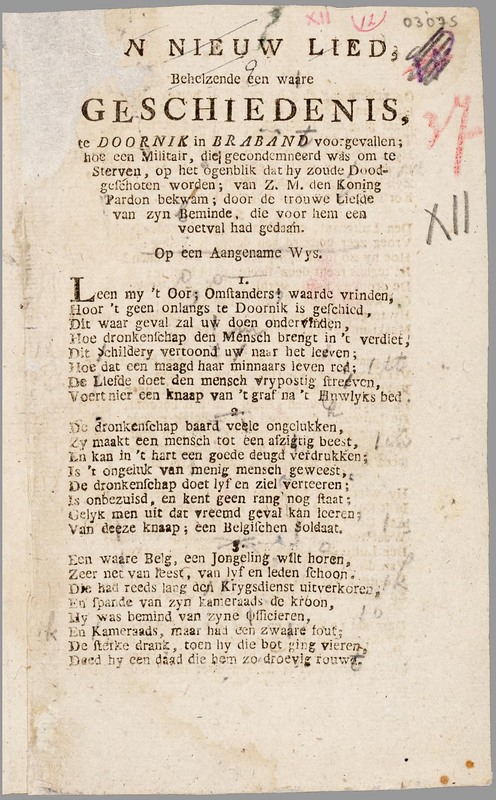 XII 12 03075
N NIEUW LIED,
Behelzende een waare
GESCHIEDENIS,
te DOORNIK in BRABAND voorgevallen;
hoe een Militair, die gecondemneerd was om te
Sterven, op het ogenblik dat hy zoude Dood-
geschoten worden; van Z. M. den Koning
Pardon bekwam; door de trouwe Liefde
van zyn Beminde, die voor hem een
voetval had gedaan.
Op een Aangename Wys.
37
XII
1.
Leen my 't Oor; Omstanders! waarde vrinden,
Hoor 't geen onlangs te Doornik is geschied,
Dit waar geval zal uw doen ondervinden,
Hoe dronkenschap den Mensch brengt in 't verdiet,
Dit Schildery vertoond uw naar het leeven;
Hoe dat een maagd haar minnaars leven red;
De Liefde doet den mensch vrypostig streeven,
Voert hier een knaap van 't graf na 't Huwlyks bed.
2.
De dronkenschap baard veele ongelukken,
Zy maakt een mensch tot een afzigtig beest,
En kan in 't hart een goede deugd verdrukken;
Is 't ongeluk van menig mensch geweest,
De dronkenschap doet lyf en ziel verteeren;
Is onbezuisd, en kent geen rang nog staat;
Gelyk men uit dat vreemd geval kan leeren;
Van deeze knaap; een Belgischen Soldaat.
3.
Een waare Belg, een Jongeling wilt horen,
Zeer net van leest, van lyf en leden schoon.
Die had reeds lang den Krygsdienst uitverkoren,
En spande van zyn kameraads de kroon,
Hy was bemind van zyne Officieren,
En Kameraads, maar had een zwaare fout;
De sterke drank, toen hy die bot ging vieren,
Deed hy een daad die hem zo droevig rouwt.